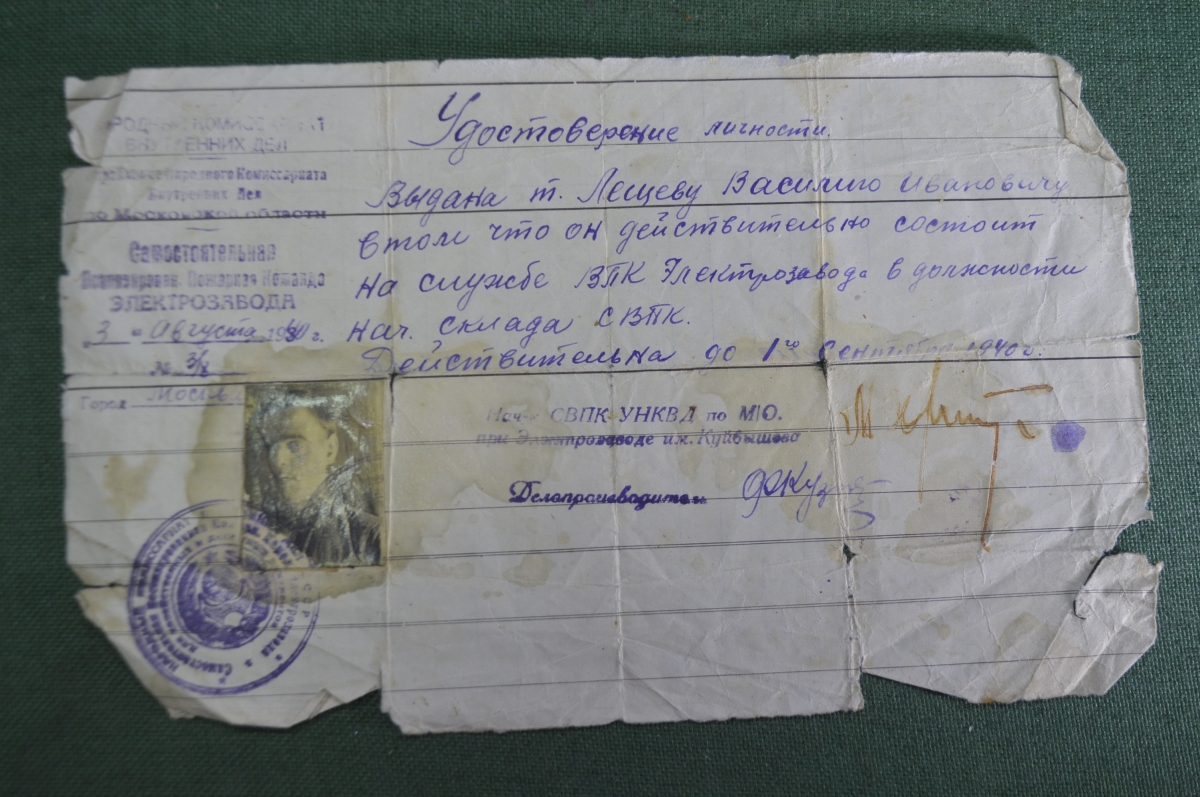 НАРОДНЫЙ КОМИССАРИАТ
ВНУТРЕННИХ ДЕЛ
Управление Народного Комиссариата
Внутренних Дел
по Московской области
Самостоятельная
Военизирован. Пожарная Команда
ЭЛЕКТРОЗАВОДА
3 " Августа 1940 г.
№ 3/8
Город Москва
Удостоверение личности.
Выдана т. Лещеву Василию Ивановичу
в том что он действительно состоит
на службе ВПК Электрозавода в должности
нач. склада СВПК.
Действительна до 1го сентября 1940 г.
Нач-к СВПК УНКВД по МО.
при Электрозаводе им. Куйбышева
Делопроизводитель